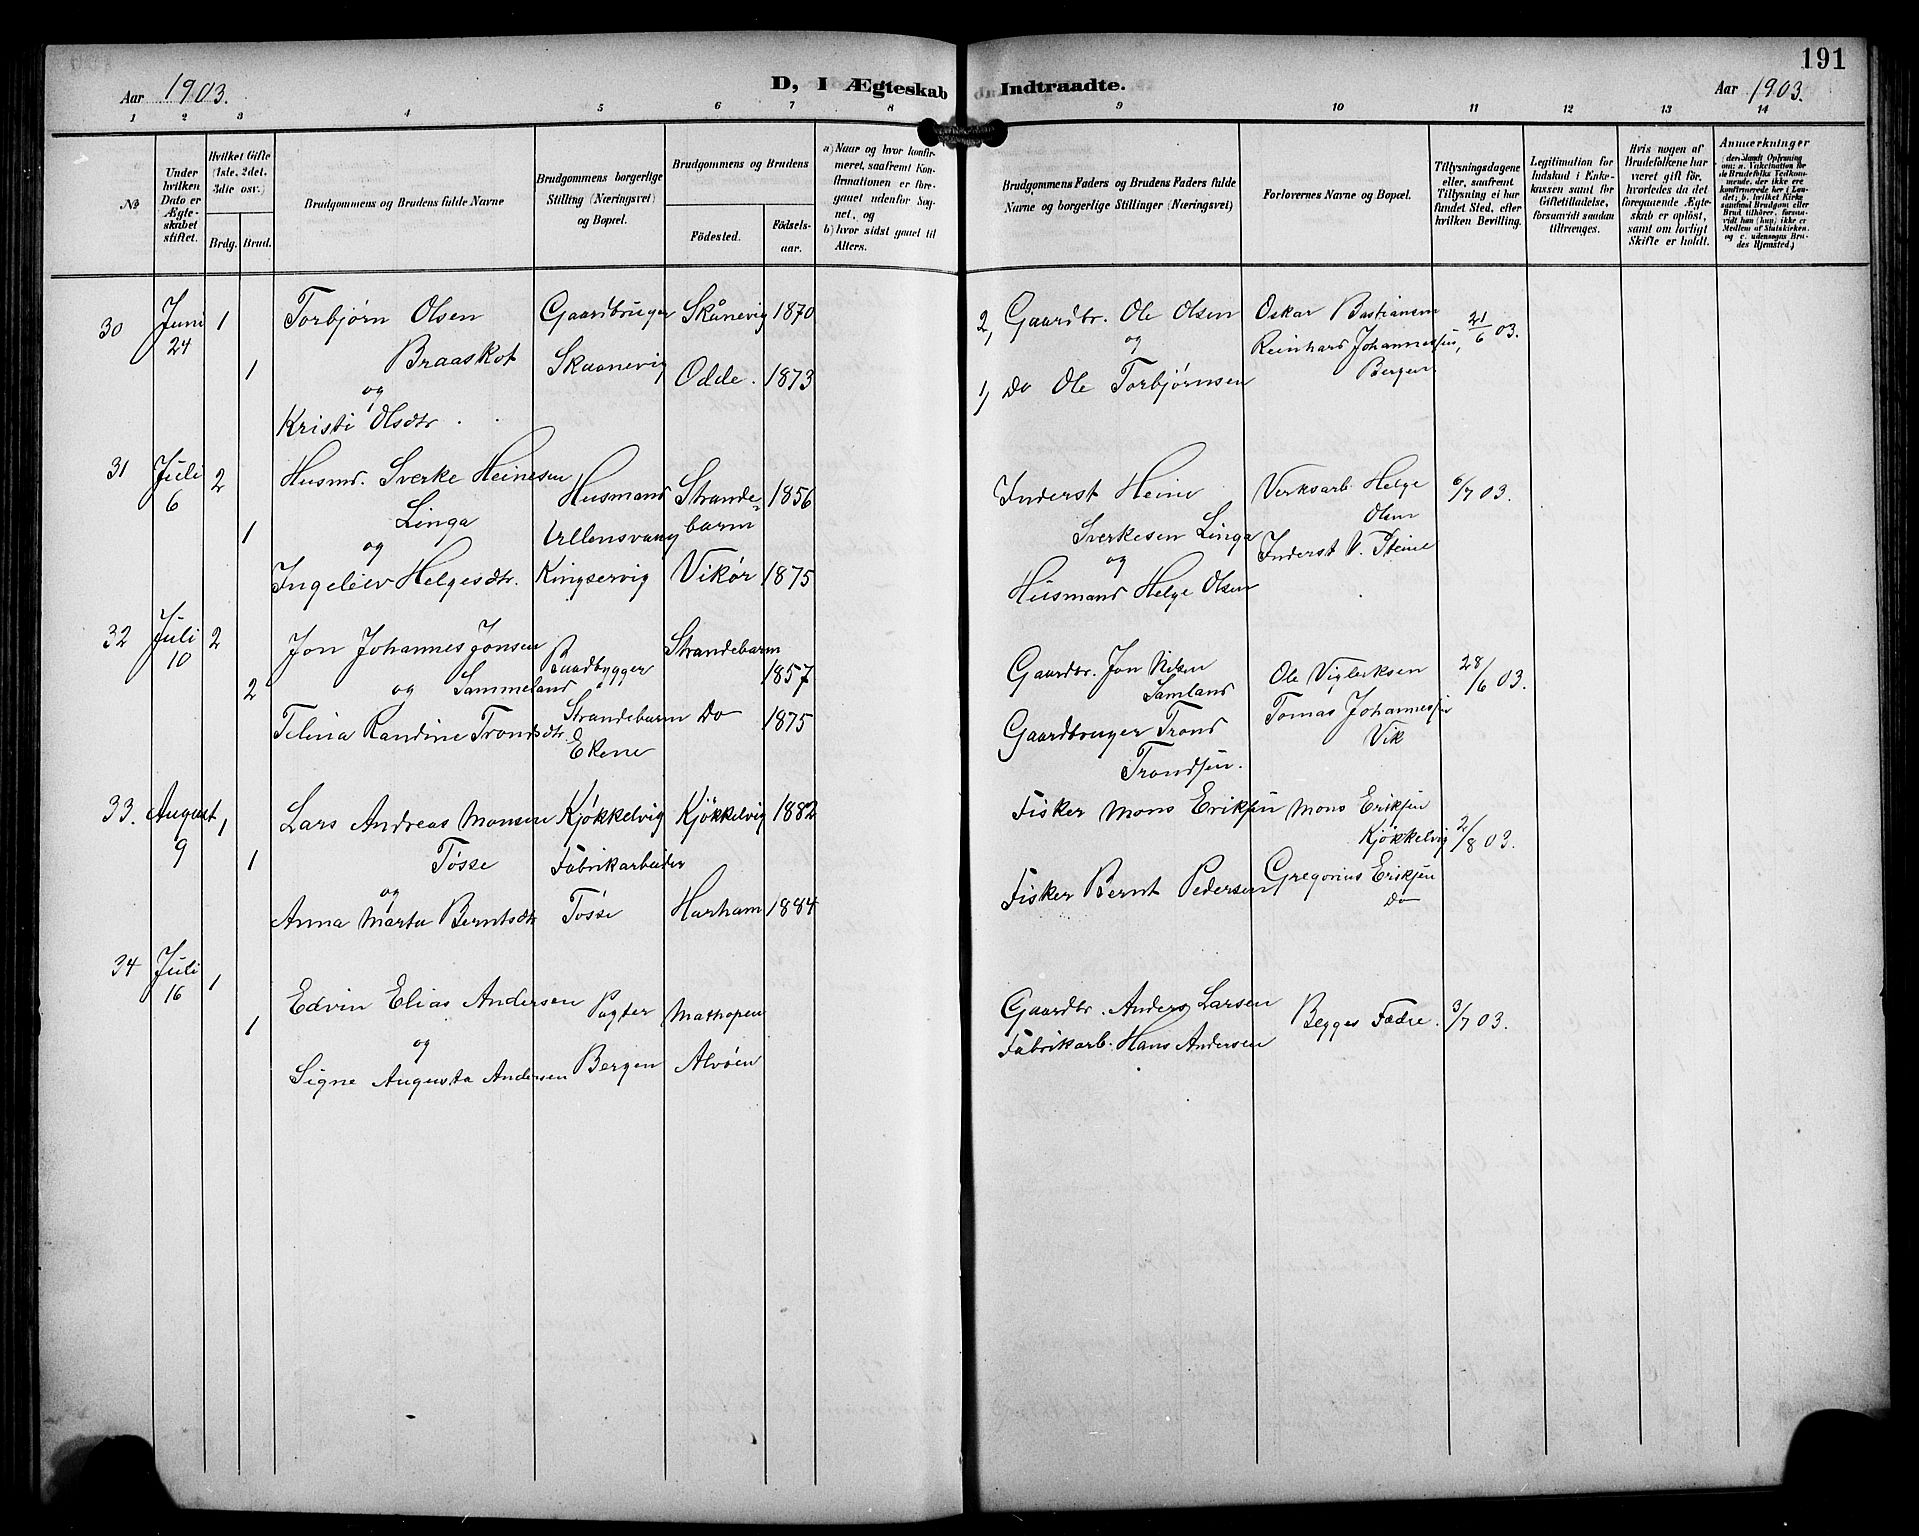 191
Aar 1903.
D, I Ægteskab Indtraadte.
Aar 1903.
1 2 3 4 5 6 7 8 9 10 11 12 13 14
No
Under hvilken Dato er Ægteskabet stiftet.
Hvilket Gifte (1ste, 2det, 3die osv.)
Brdg. Brud.
Brudgommens og Brudens fulde Navne
Brudgommens borgerlige Stilling (Næringsvei) og Bopæl.
Brudgommens og Brudens
Fødested.
Fødselsaar.
a) Naar og hvor konfirmeret, saafremt Konfirmationen er foregaaet udenfor Sognet, og
b) hvor sidst gaaet til Alters.
Brudgommens Faders og Brudens Faders fulde Navne og borgerlige Stillinger (Næringsvei)
Forlovernes Navne og Bopæl.
Tillysningsdagene eller, saafremt Tillysning ei har fundet Sted, efter hvilken Bevilling.
Legitimation for Indskud i Enkekassen samt for Giftetilladelse, forsaavidt saadan tiltrænges.
Hvis nogen af Brudefolkene har været gift før, hvorledes da det foregaaende Ægteskab er opløst, samt om lovligt Skifte er holdt.
Anmerkninger
30 Juni 24 1 1
Torbjørn Olsen
Braaskot
og
Kristi Olsdtr.
Gaardbruger
Skaanevig
Skånevig 1870
Odde. 1873
2, Gaardbr. Ole Olsen
og
1) Do Ole Torbjørnsen
Oskar Bastiansen
Reinhard Johannessen,
Bergen
21/6 03.
31 Juli 6 2 1
Husmd. Sverke Heinesen
Linga
og
Ingeleiv Helgesdtr.
Husmand
Ullensvang
Kingservig
Strandebarm 1856
Vikør 1875
Inderst Heine
Sverkesen Linga
og
Husmand Helge Olsen
Verksarb. Helge
Olsen
Inderst V. Steine
6/7 03.
32 Juli 10 2 2
Jon Johannes Jonsen
og Sammeland
Telina Randine Trondsdtr.
Baadbygger
Strandebarm
Ekene
Strandebarm
1857
Do 1875
Gaardbr. Jon Nilsen
Samland
Gaardbruger Trond
Trondsen.
Ole Viglecksen
Tomas Johannessen
Vik
28/6 03.
33. August 9 1 1
Lars Andreas Monsen
Tøsse
og
Anna Marta Berntsdtr
Kjøkkelvig
Fabrikarbeider
Tøsse
Kjøkkelvig 1882
Harham 1884
Fisker Mons Eriksen
Fisker Bernt Pedersen
Mons Eriksen
Kjøkkelvig
Gregorius Eriksen
Do
2/8 03.
34 Juli 16 1 1
Edvin Elias Andersen
og
Signe Augusta Andersen
Pagter
Bergen
Mathopen
Alvøen
Gaardbr. Anders Larsen
Fabrikarb. Hans Andersen
Begges Fædre.
3/7 03.